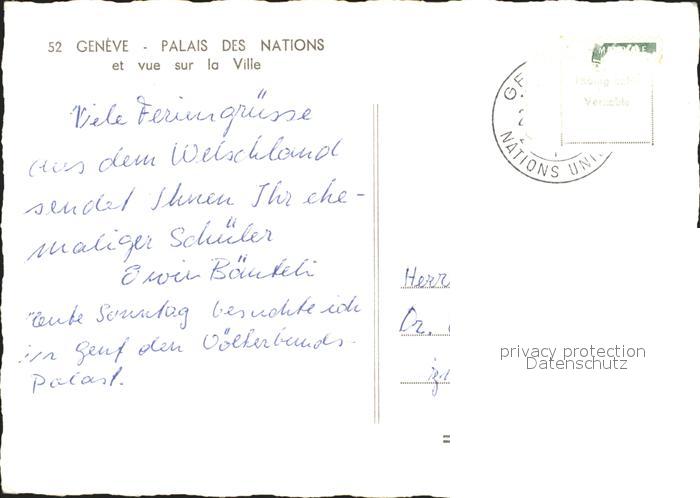 52 GENÈVE - PALAIS DES NATIONS
et vue sur la Ville
Viele Feriengrüsse
aus dem Welschland
sendet Ihnen Ihr ehe-
maliger Schüler
Erwin
Heute Sonntag besuchte ich
in Genf den Völkerbunds-
Palast.
Herr
Dr.
NATIONS UNI
privacy protection
Datenschutz